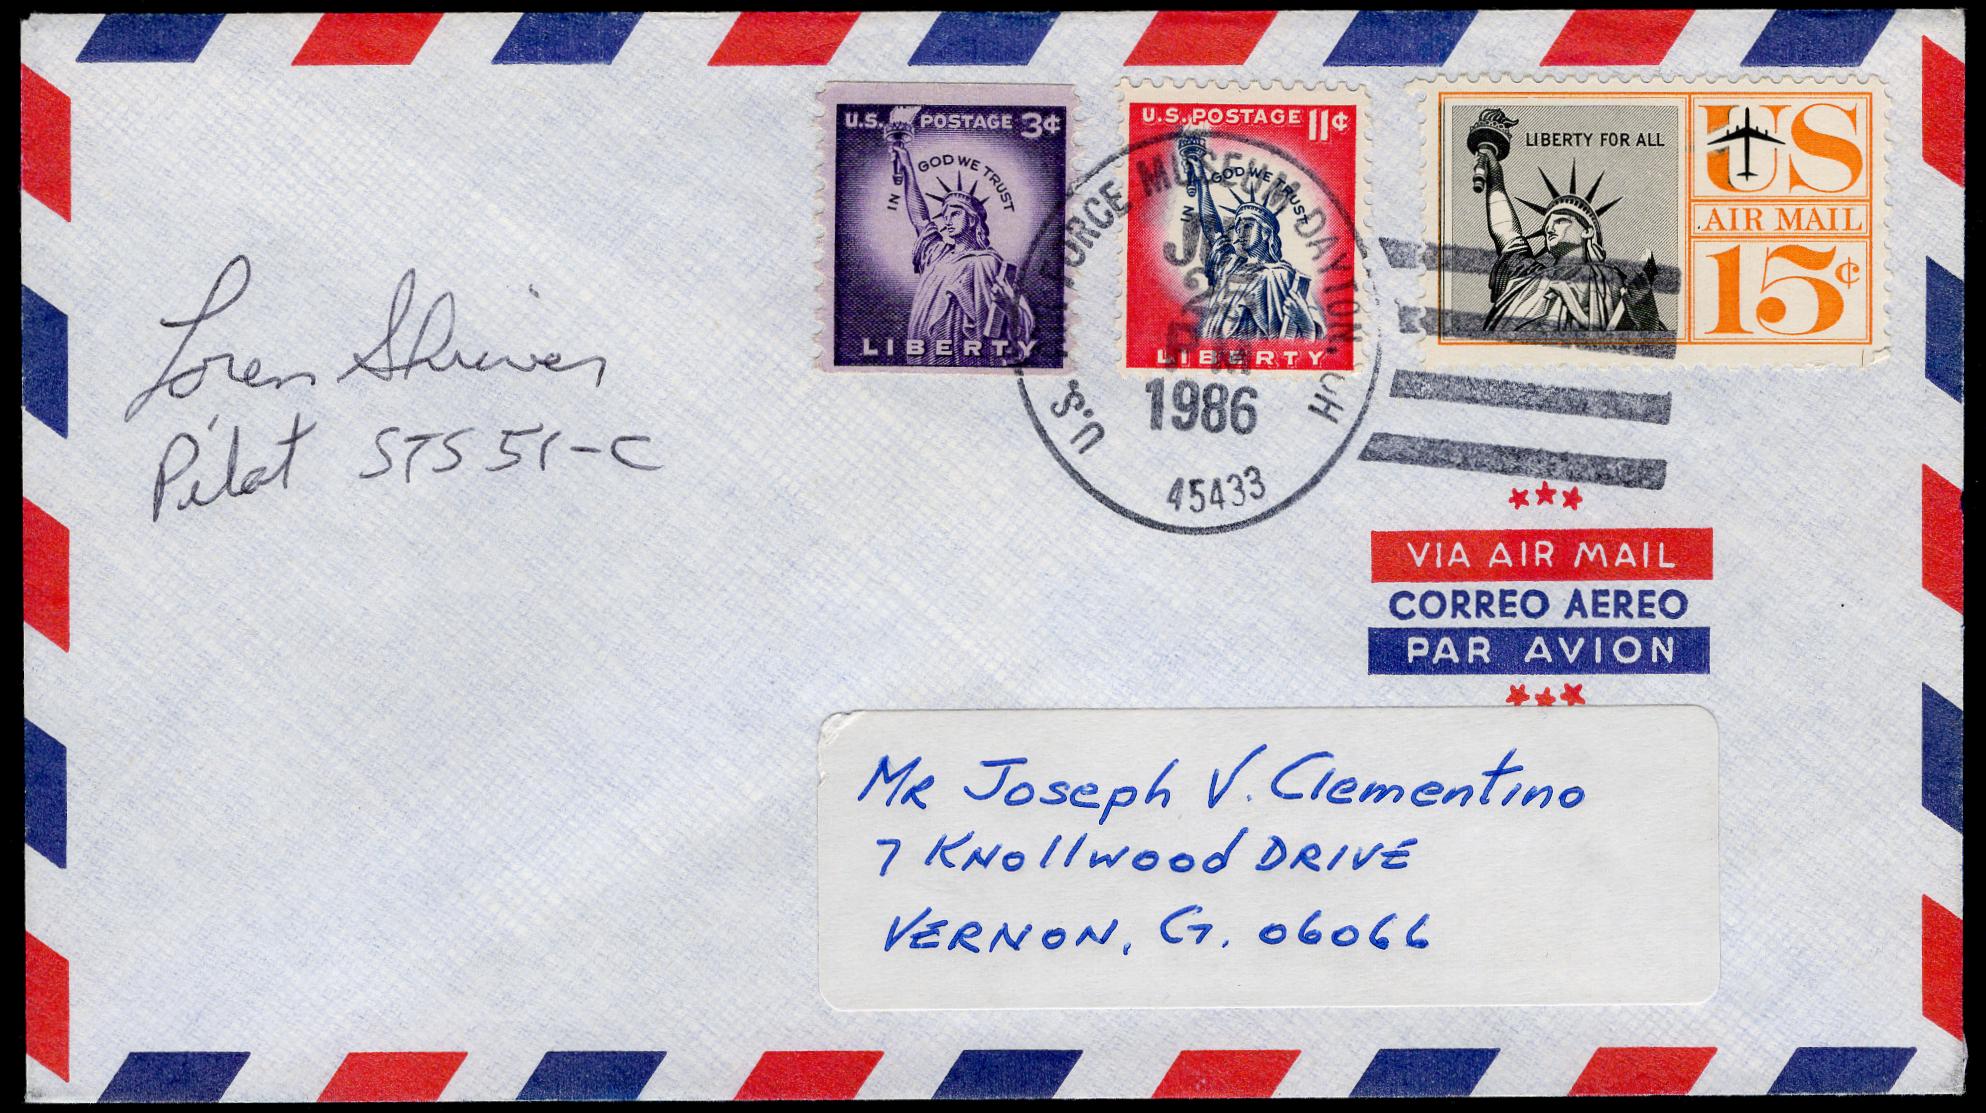 Loren Shriver
Pilot STS 51-C
U.S. POSTAGE 3¢
IN GOD WE TRUST
LIBERTY
U.S. POSTAGE 11¢
IN GOD WE TRUST
LIBERTY
LIBERTY FOR ALL
US
AIR MAIL
15¢
U.S. AIR FORCE MUSEUM DAYTON, OH
PM
1986
45433
VIA AIR MAIL
CORREO AEREO
PAR AVION
MR Joseph V. Clementino
7 Knollwood DRIVE
VERNON, CT. 06066